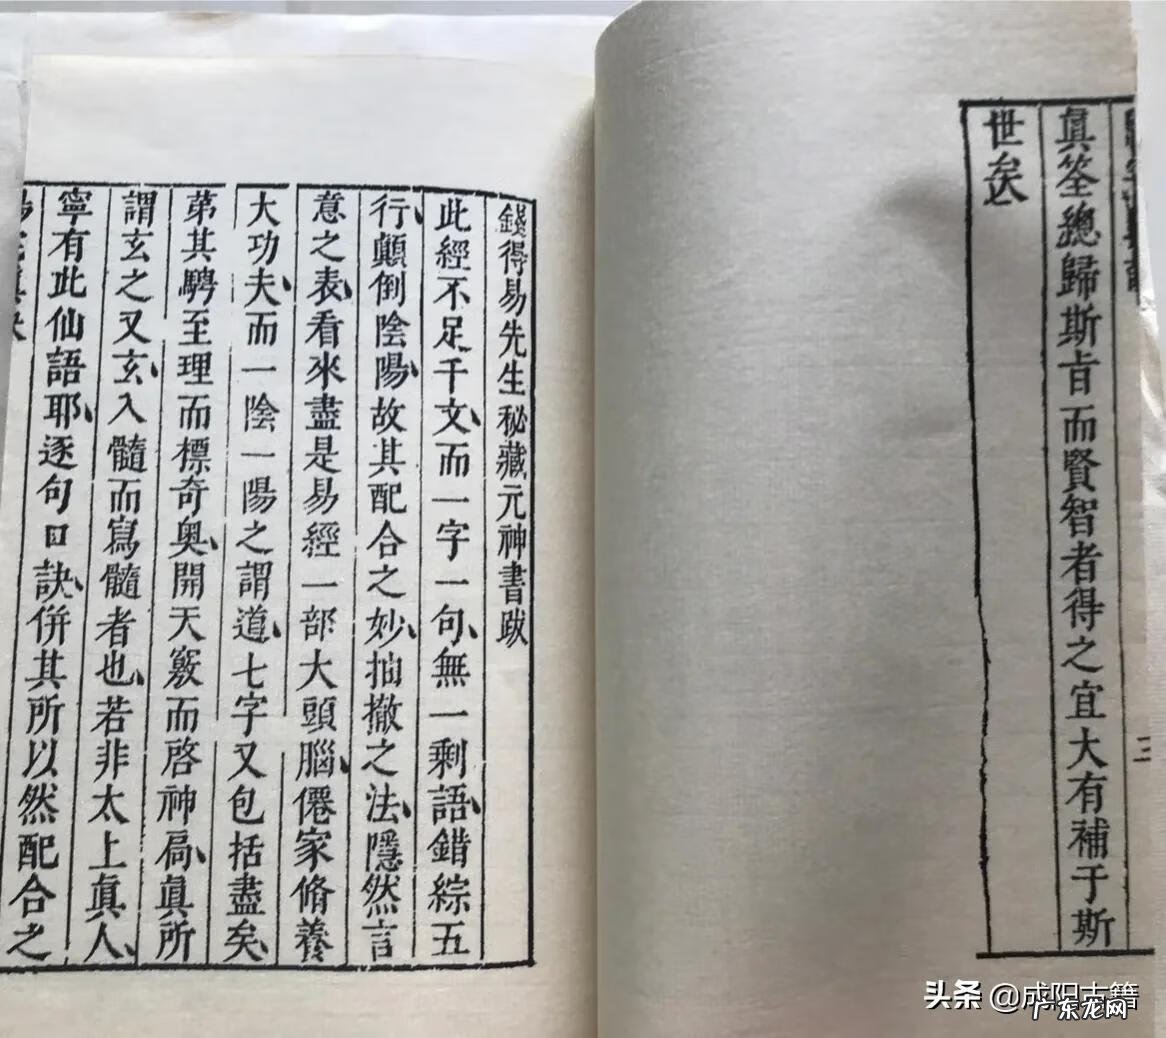 眞筌總歸斯旨而賢智者得之宜大有補于斯
世矣
三
錢得易先生秘藏元神書跋
此經不足千文而一字一句無一剩語錯綜五
行顚倒陰陽故其配合之妙抽撤之法隱然言
意之表看來盡是易經一部大頭腦僊家脩養
大功夫而一陰一陽之謂道七字又包括盡矣
第其騁至理而標奇奧開天竅而啓神扃眞所
謂玄之又玄入髓而寫髓者也若非太上眞人
寧有此仙語耶逐句口訣併其所以然配合之
头条 @成阳古籍
广东龙网